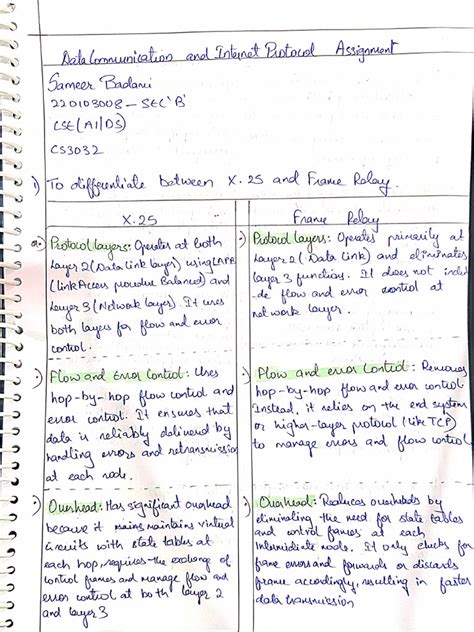 Data Communication and Internet Protocol Assignment
Sameer Badani
220103008 - SEC 'B'
CSE (AI/DS)
CS3032
1) To differentiate between X.25 and Frame Relay.
X.25
Protocol layers: Operates at both
layer 2 (Data link layer) using LAPB
(link Access procedure Balanced) and
layer 3 (Network layer). It uses
both layers for flow and error
control.
Flow and Error Control: Uses
hop-by-hop flow control and
error control. It ensures that
data is reliably delivered by
handling errors and retransmission
at each node.
Overhead: Has significant overhead
because it maintains virtual
circuits with state tables at
each hop, requires the exchange of
control frames and manage flow and
error control at both layer 2
and layer 3
Frame Relay
Protocol layers: Operates primarily at
Layer 2 (Data link) and eliminates
layer 3 functions. It does not includ
-de flow and error control at
network layer.
Flow and error Control: Removes
hop-by-hop flow and error control
Instead, it relies on the end system
or higher-layer protocol (like TCP)
to manage errors and flow control
Overhead: Reduces overheads by
eliminating the need for state tables
and control frames at each
intermediate node. It only checks for
frame errors and forwards or discards
frame accordingly, resulting in faster
data transmission